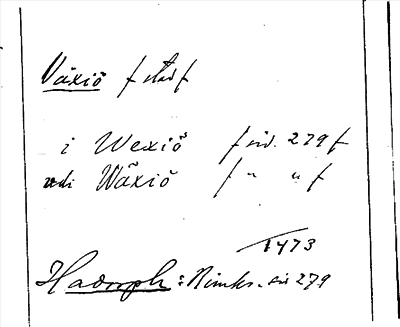 Växiö f stad f
i Wexiö f sid. 279 f
udi Wäxiö f " " f
1473
Hadorph: Rimkr. sid 279